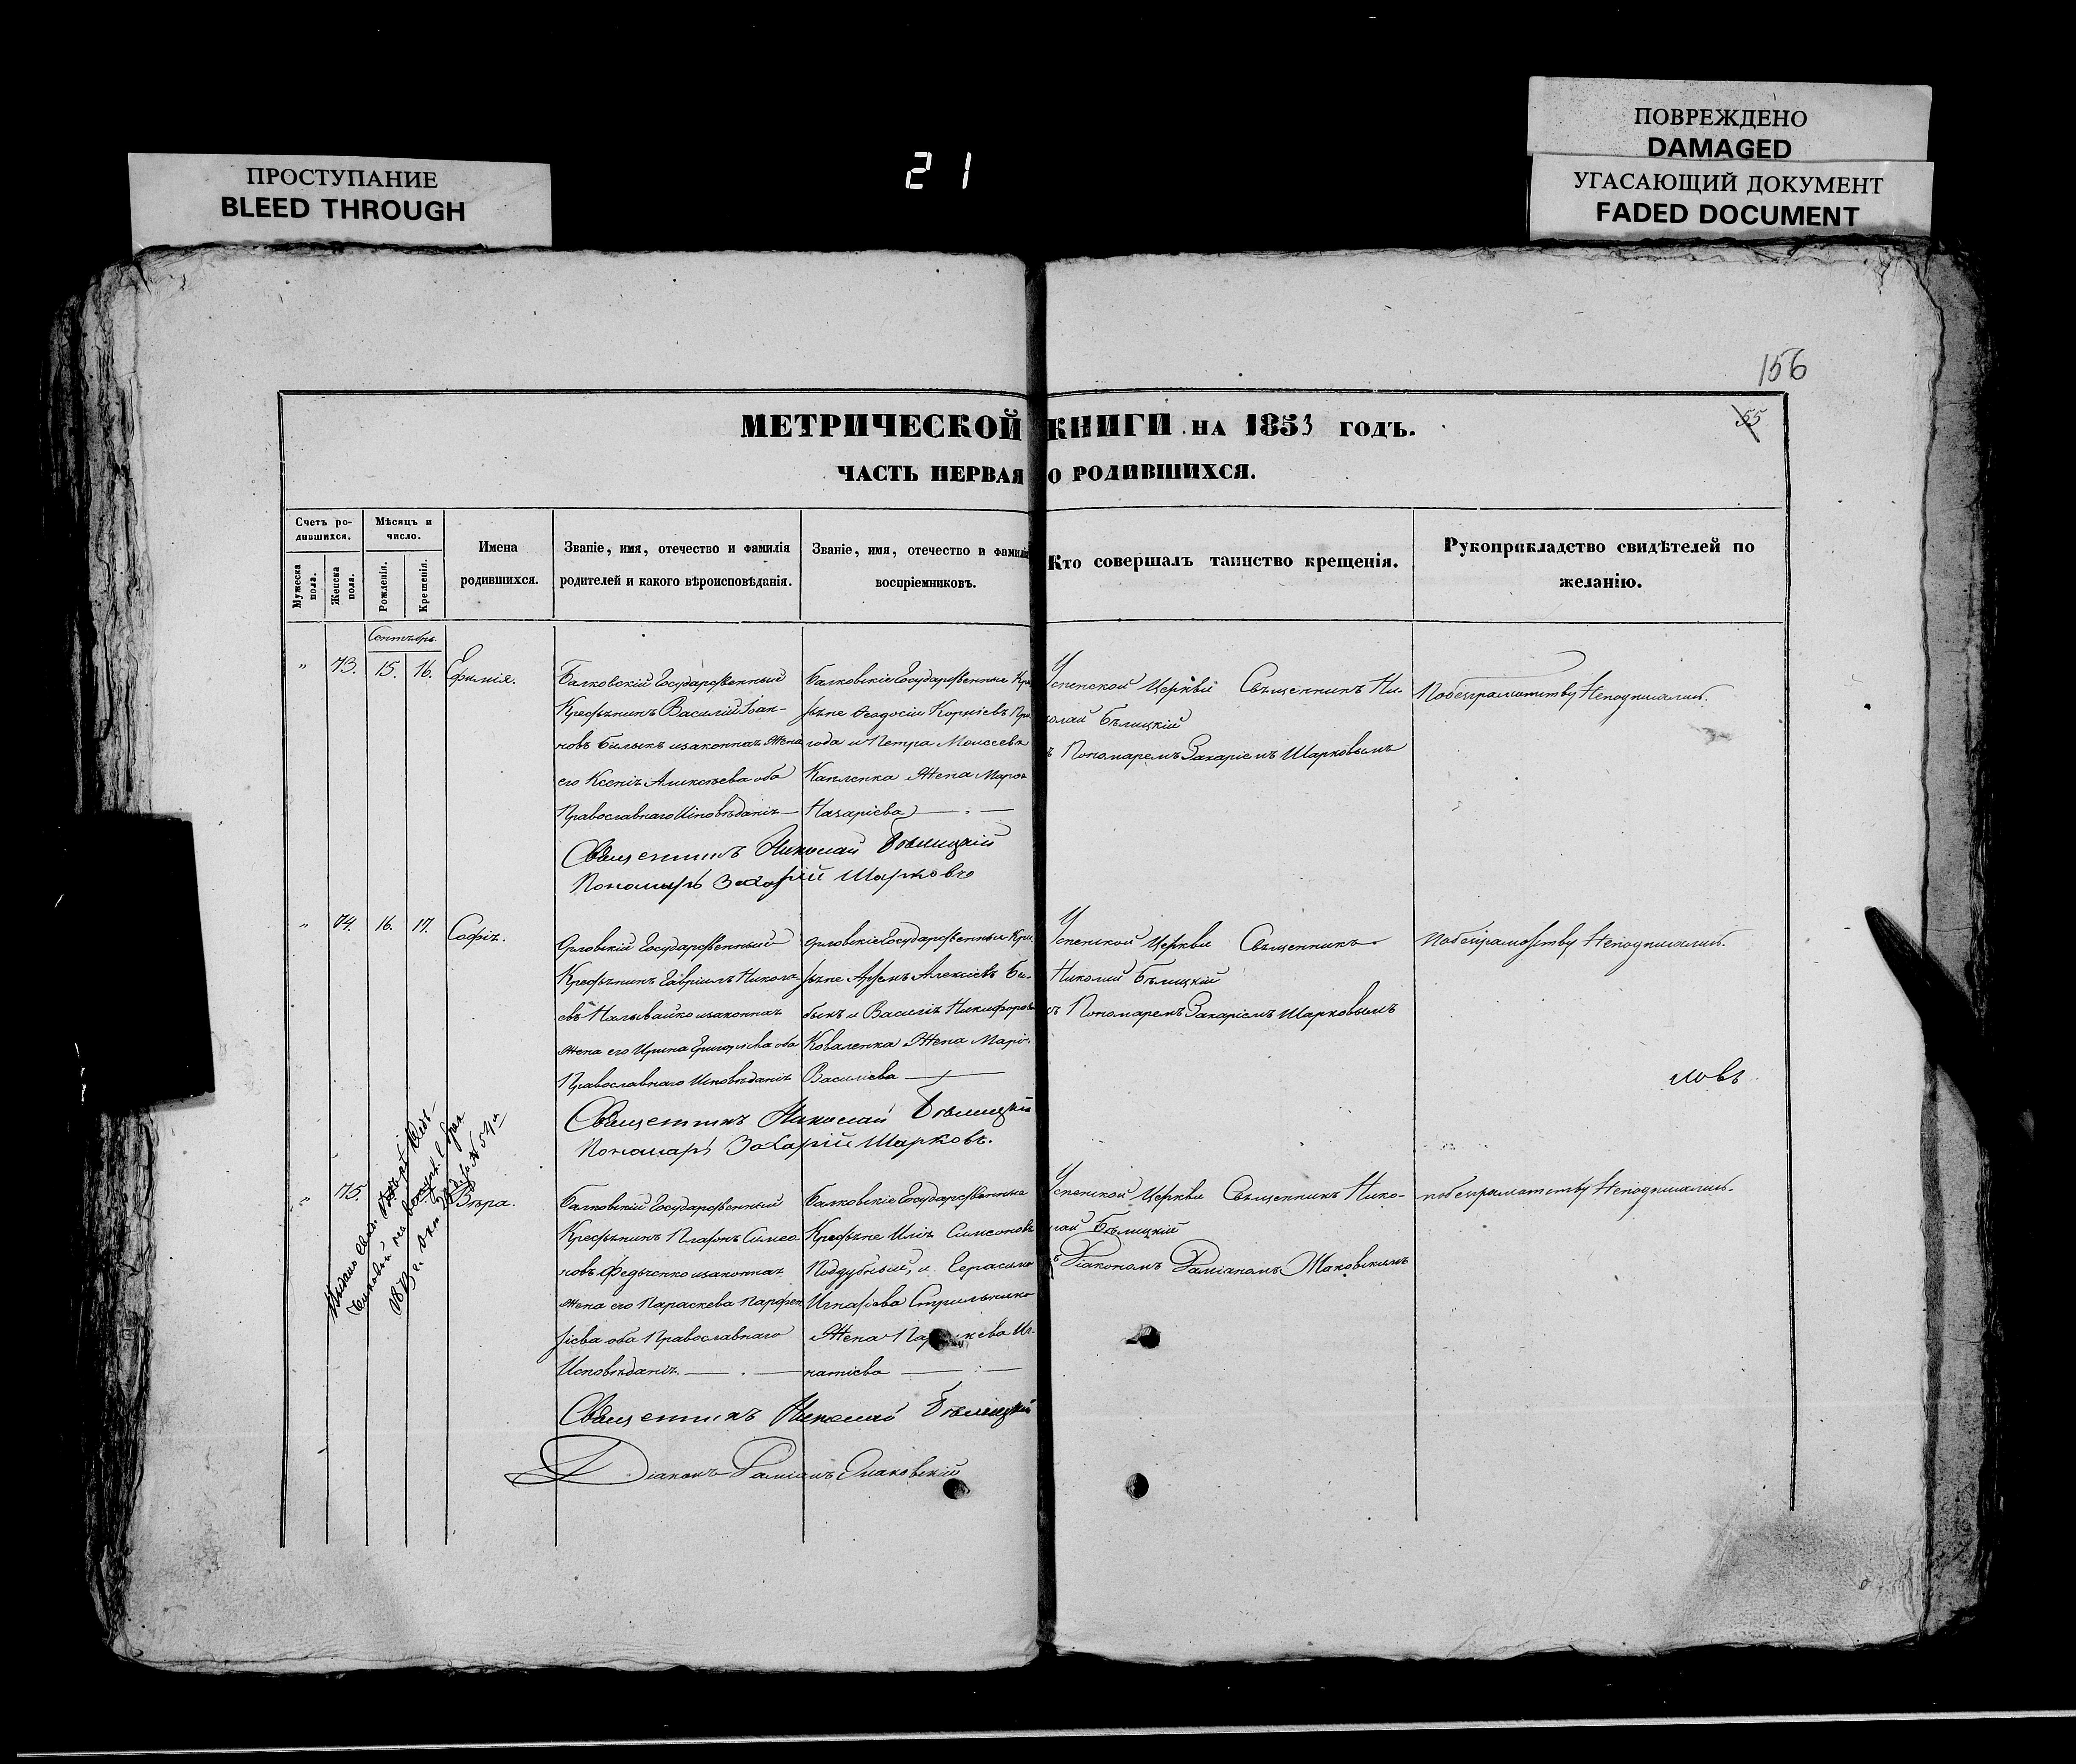 ПРОСТУПАНИЕ
BLEED THROUGH
21
ПОВРЕЖДЕНО
DAMAGED
УГАСАЮЩИЙ ДОКУМЕНТ
FADED DOCUMENT
156
55
МЕТРИЧЕСКОЙ КНИГИ НА 1853 ГОДЪ.
ЧАСТЬ ПЕРВАЯ О РОДИВШИХСЯ.
Счетъ ро-
дившихся.
Мужеска пола.
Женска пола.
Мѣсяцъ и
число.
Рожденія.
Крещенія.
Имена
родившихся.
Званіе, имя, отечество и фамилія
родителей и какого вѣроисповѣданія.
Званіе, имя, отечество и фамилія
воспріемниковъ.
Кто совершалъ таинство крещенія.
Рукоприкладство свидѣтелей по
желанію.
" 73. 15. 16.
Ефимія.
Балковскій Государственный
Крестьянинъ Василій Іоан-
новъ Билыкъ и законная Жена
его Ксенія Алексѣева оба
Православнаго Исповѣданія
Балковскіе Государственные Кре
стьяне Ѳеодосій Корніевъ При
года и Петра Моисеева
Капленка Жена
Назаріева
Успенской Церкви Священникъ Ни-
колай Бѣлицкій
ъ Пономаремъ Захаріемъ Шарковымъ
По безграматству Неподписались.
Священникъ Николай Бѣлицкій
Пономарь Захарій Шарковъ
" 74. 16. 17.
Софія.
Орловскій Государственный
Крестьянинъ Гавріилъ Никола-
евъ Наливайко и законная
Жена его Ирина Григорьева оба
Православнаго Исповѣданія
Орловскіе Государственные Кре
стьяне Алексіевъ Би-
быкъ и Василія Никифорова
Коваленка Жена Марія
Василіева
Успенской Церкви Священникъ
Николай Бѣлицкій
ъ Пономаремъ Захаріемъ Шарковымъ
По безграмотству Неподписались.
ловъ
Священникъ Николай Бѣлицкій
Пономарь Захарій Шарковъ.
" 75.
Вѣра.
Балковскій Государственный
Крестьянинъ Платонъ Симео
новъ Федченко и законная
Жена его Параскева Парфен
тіева оба Православнаго
Исповѣданія.
Балковскіе Государственные
Крестьяне Илія Симеоновъ
Поддубный, и Герасима
Игнатіева Стрильника
Жена Иг-
натіева
Успенской Церкви Священникъ Нико-
лай Бѣлицкій
ъ Діакономъ Даміаномъ Маковскимъ
по безграматству Неподписались.
Священникъ Николай Бѣлицкій
Діаконъ Даміанъ Маковскій